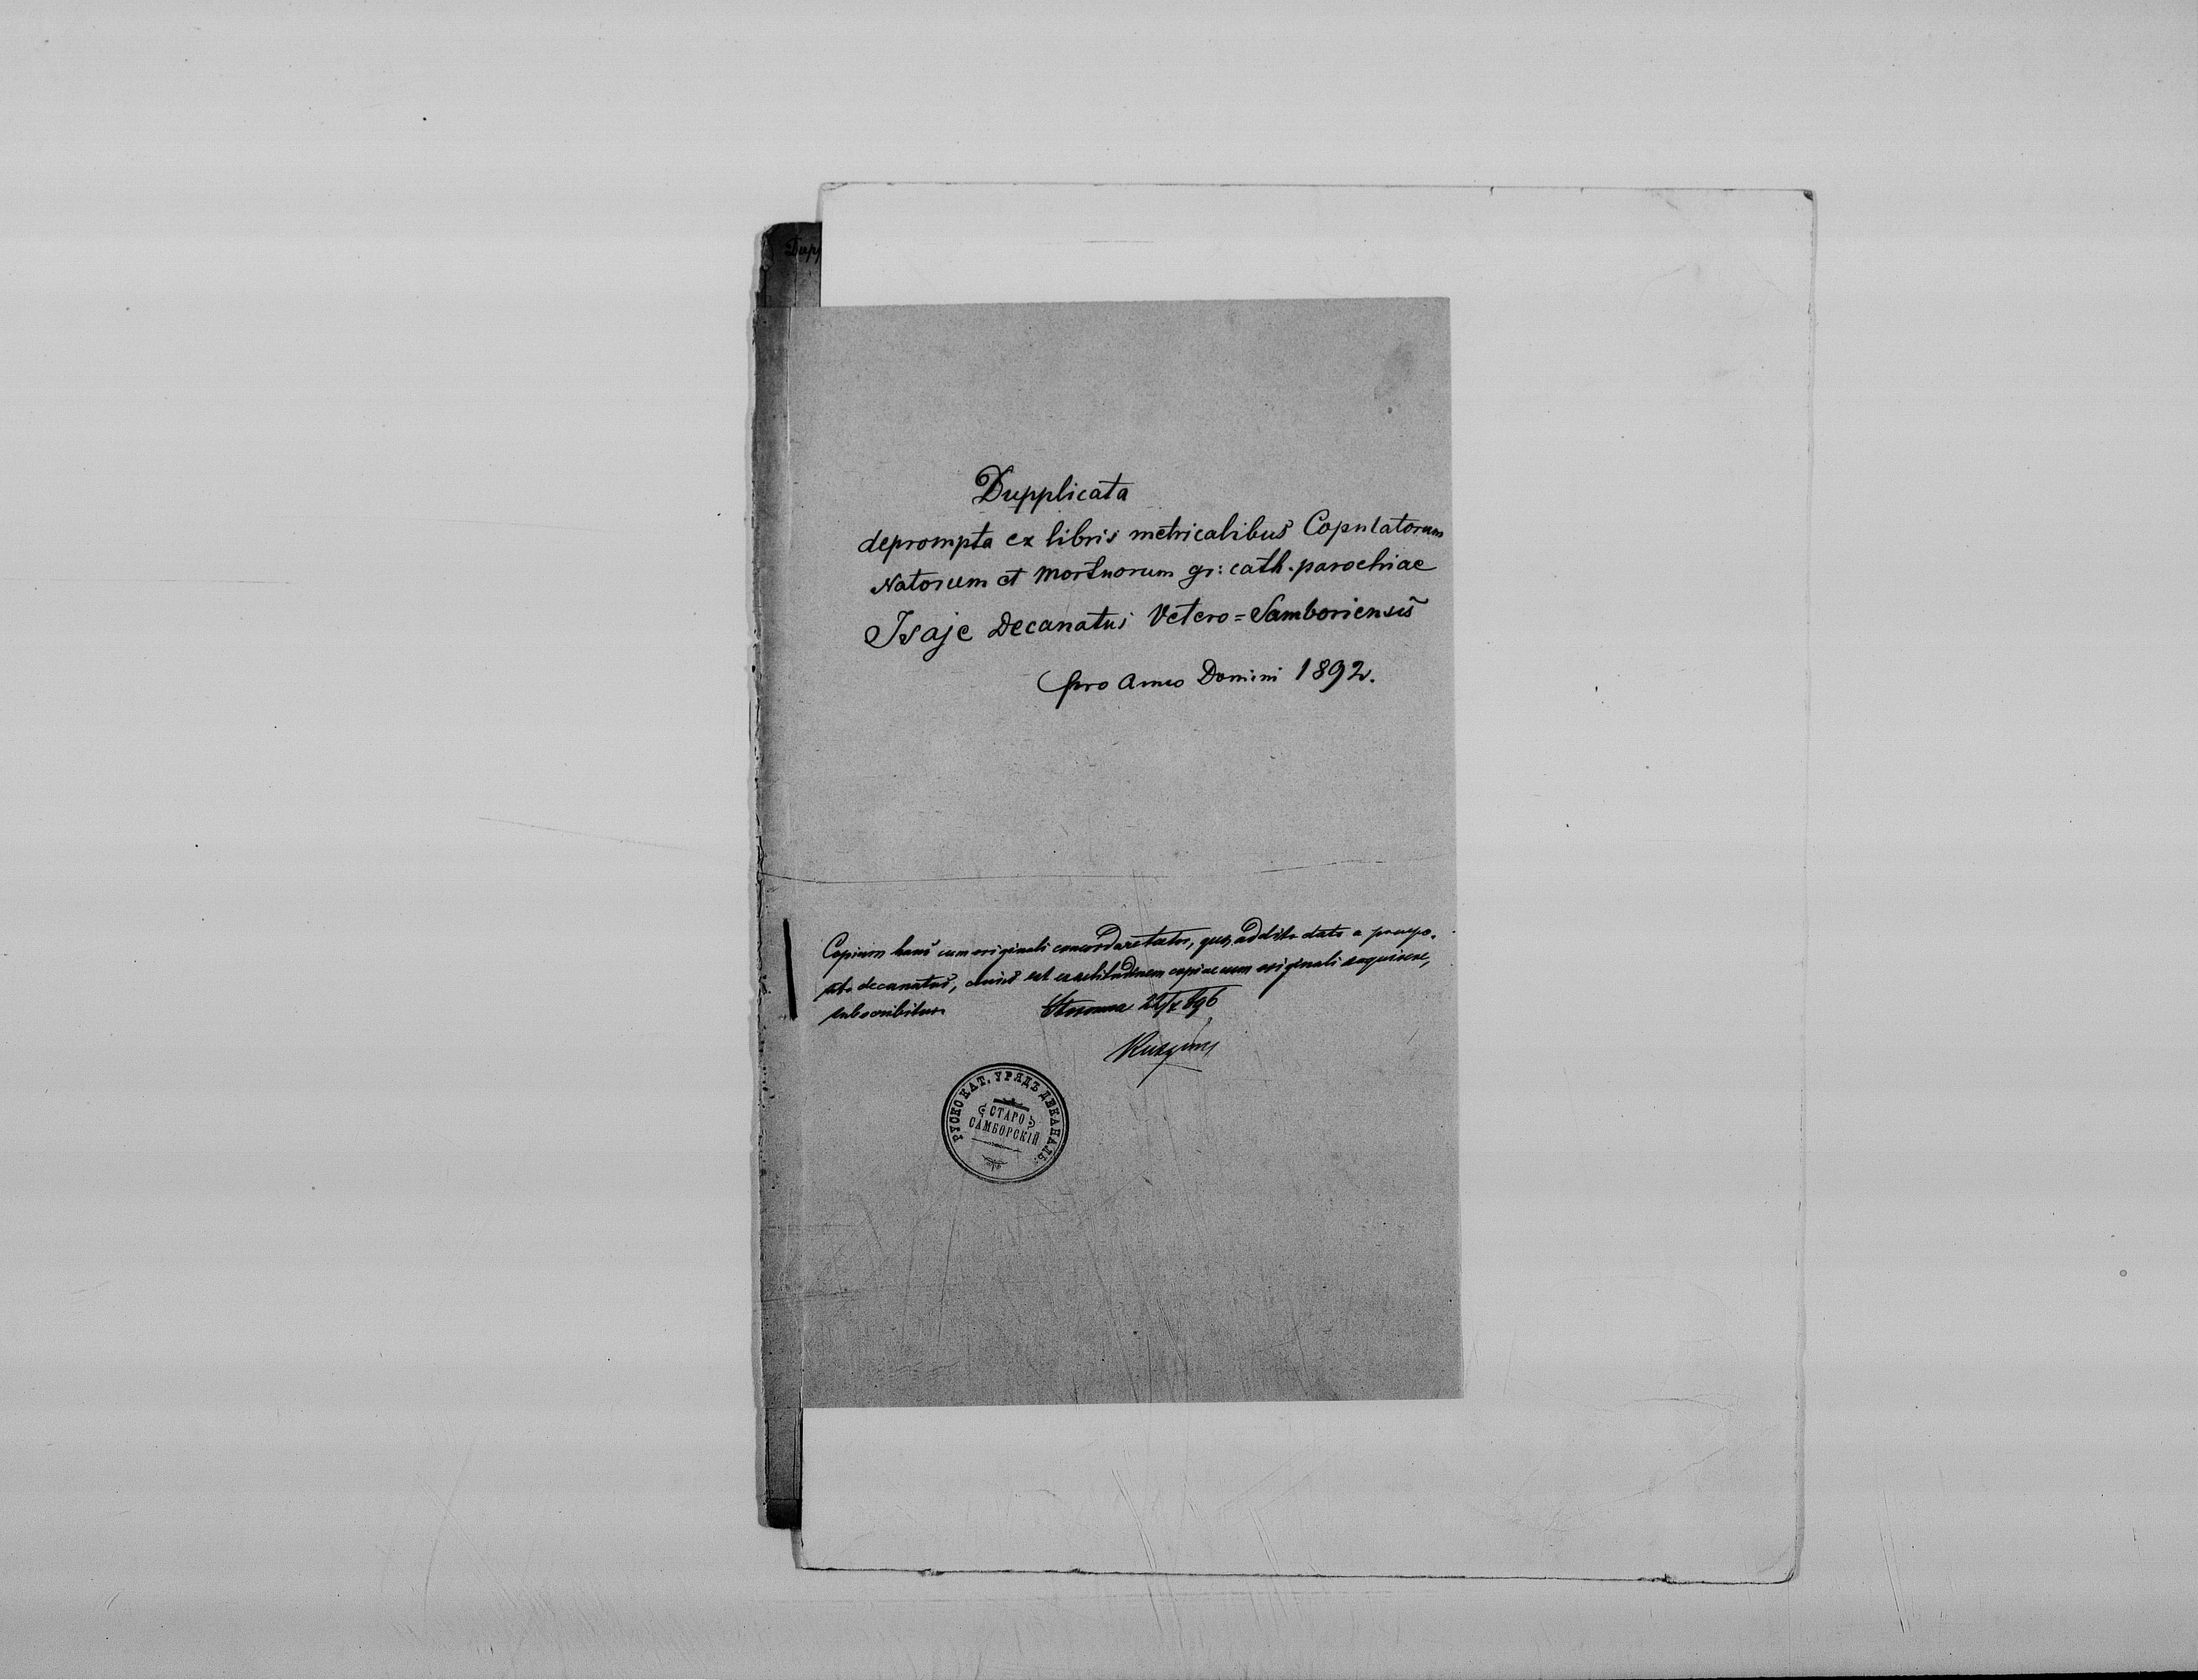 Dupp
Dupplicata
deprompta ex libris metricalibus Copulatorum
Natorum et Mortuorum gr: cath. parochiae
Isaje Decanatus Vetero=Samboriensis
pro Anno Domini 1892.
Copiam hanc cum originali concordare, addito dato a praepo-
sito decanatus, exactitudinem copiae cum originali
subscribitur
22/X 896
РУСКО КАТ. УРЯДЪ ДЕКАНАЛЬ.
СТАРО
САМБОРСКІЙ